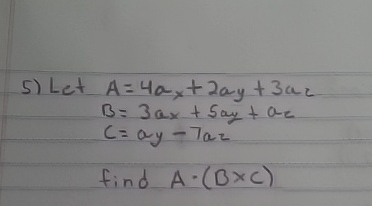 5) Let A = 4ax + 2ay + 3az
B = 3ax + 5ay + az
C = ay - 7az
find A · (B×C)